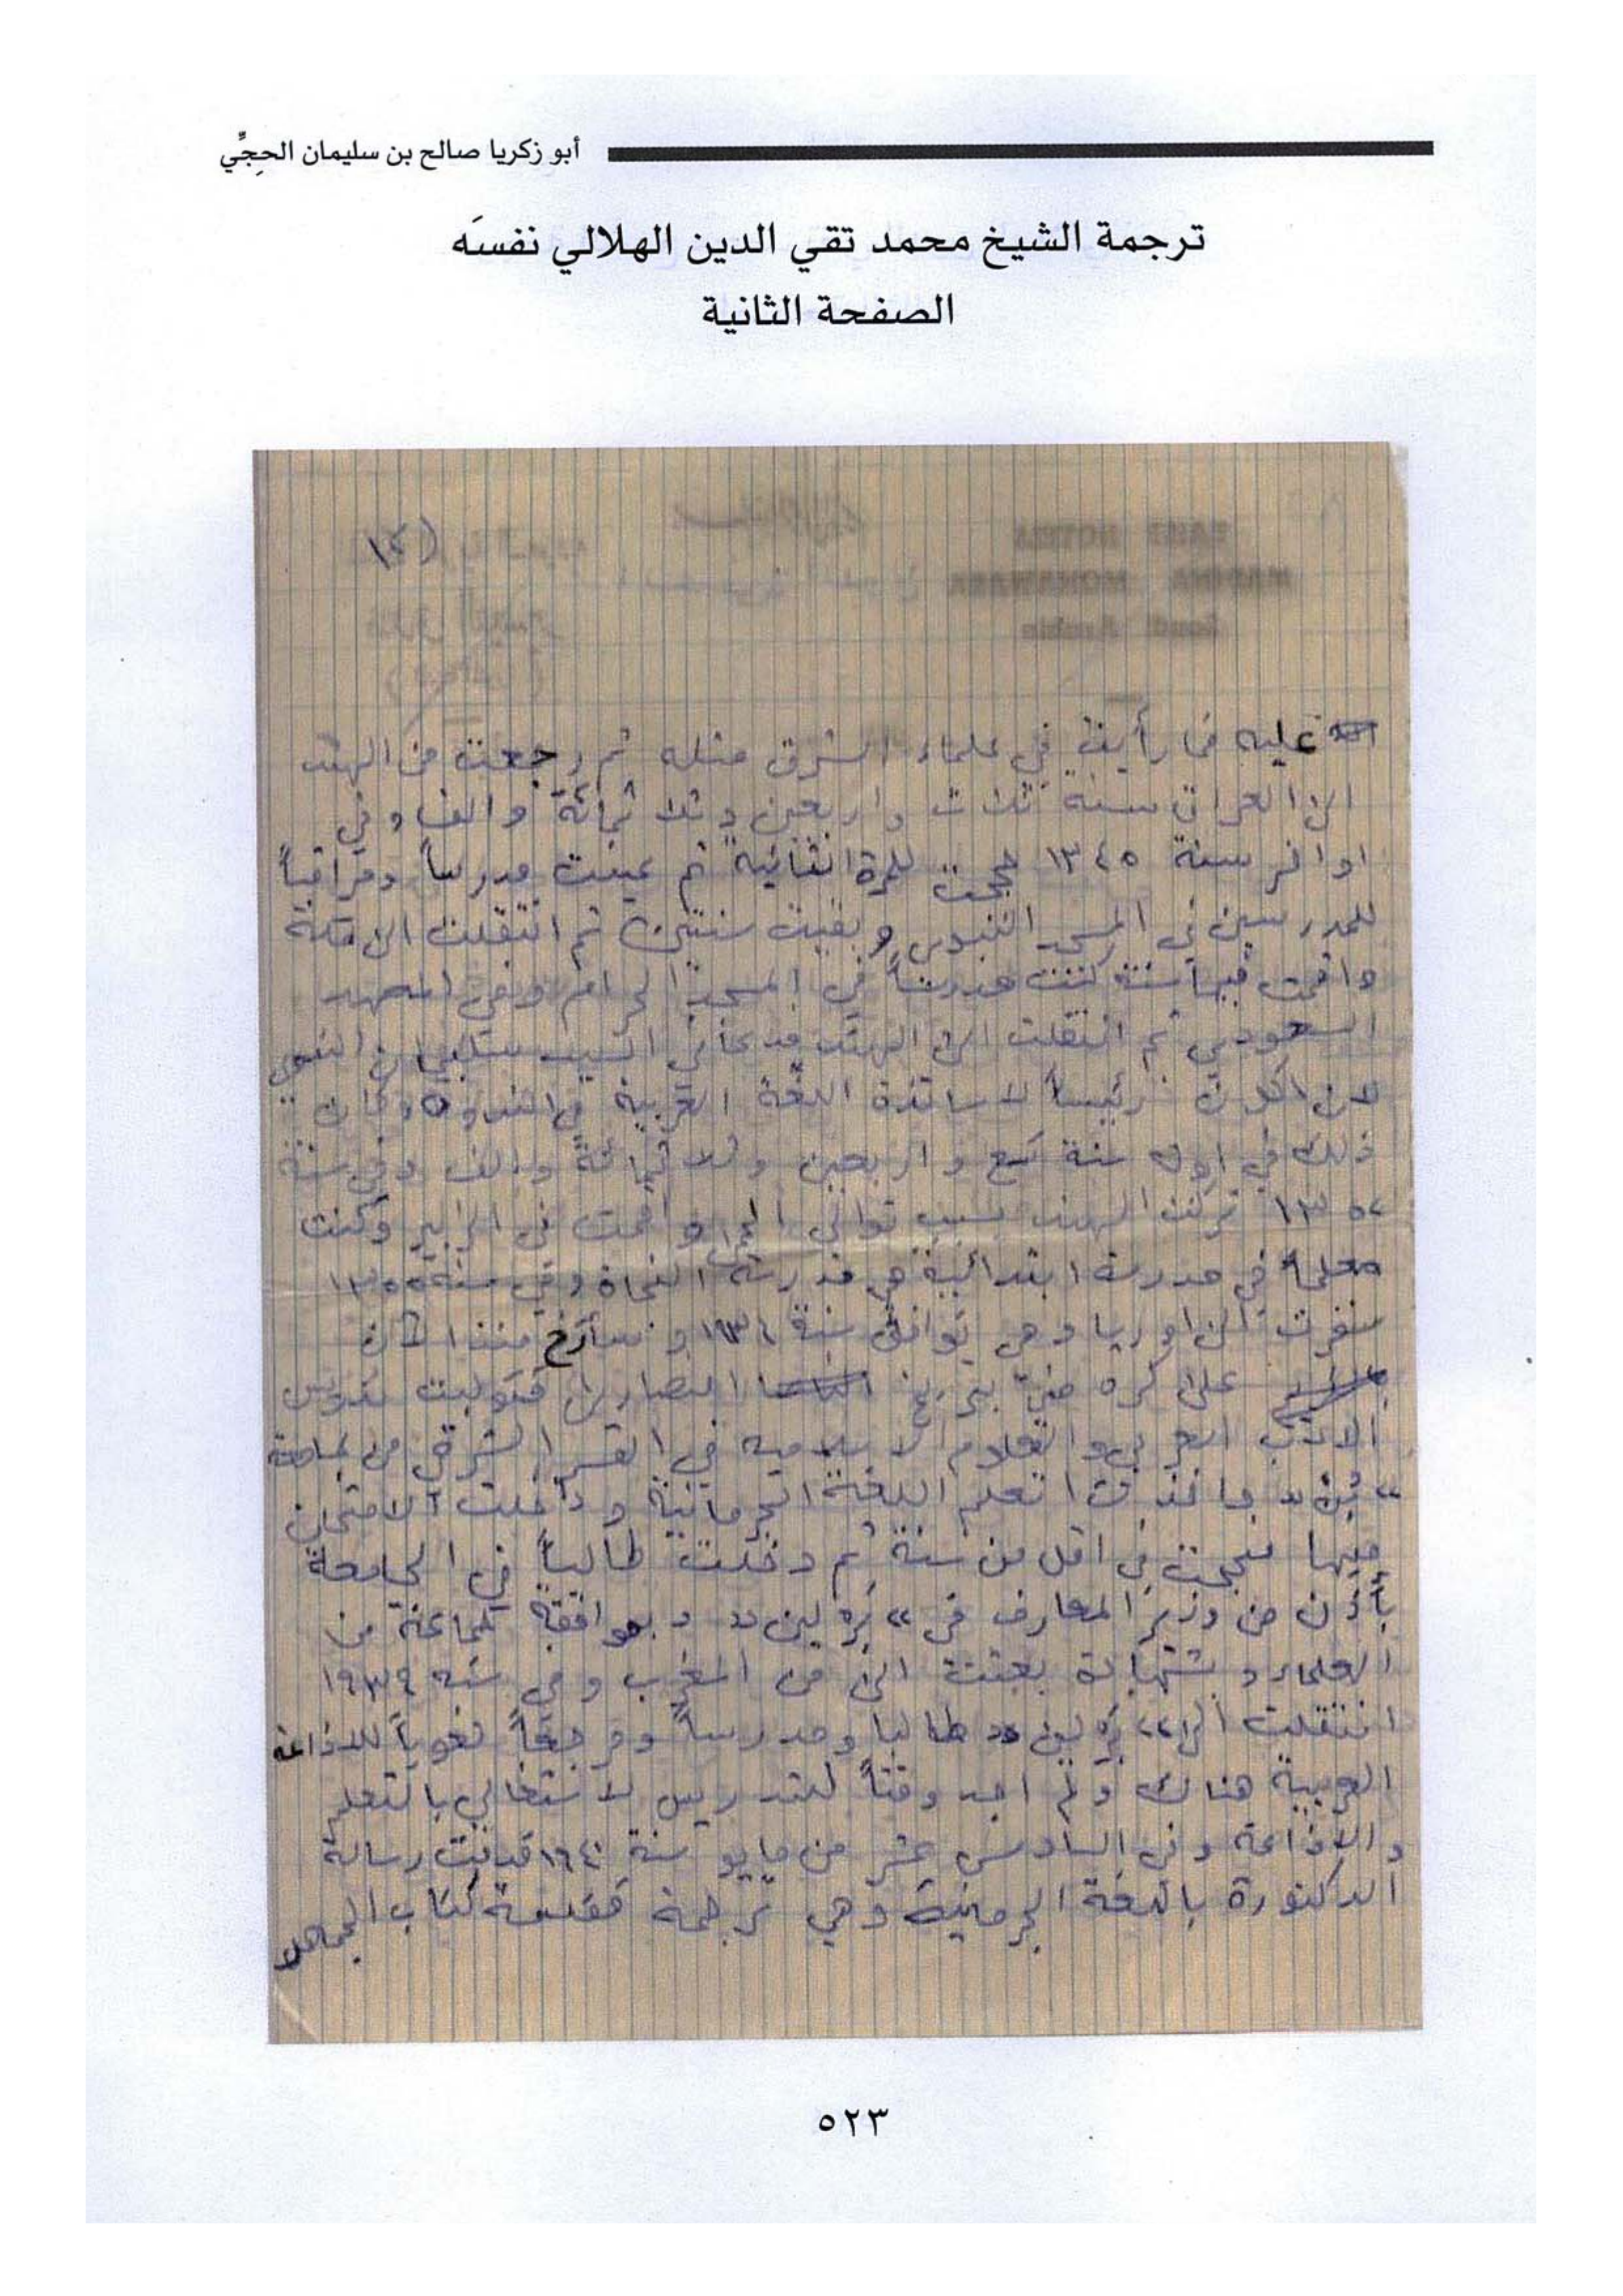 أبو زكريا صالح بن سليمان الحجِّي
ترجمة الشيخ محمد تقي الدين الهلالي نفسَه
الصفحة الثانية
(٢)
عليه فما رأيت في علماء الشرق مثله ثم رجعت من الهند
الى العراق سنة ثلاث واربعين وثلاثمائة والف وفي
اواخر سنة ١٣٤٥ حججت للمرة الثانية ثم عينت مدرساً ومراقباً
للمدرسين في المسجد النبوي وبقيت سنتين ثم انتقلت الى مكة
واقمت فيها سنة كنت مدرساً في المسجد الحرام وفي المعهد
السعودي ثم انتقلت الى الهند فدعاني السيد سليمان الندوي
لان اكون رئيساً لاساتذة اللغة العربية في الندوة وكان
ذلك في اول سنة تسع واربعين وثلاثمائة والف وفي سنة
١٣٥٢ تركت الهند بسبب توالي الحمى واقمت في الزبير وكنت
معلما في مدرسة ابتدائية هي مدرسة النجاة وفي سنة ١٣٥٥
سفرت الى اوربا وهي توافق سنة ١٩٣٦ و سأؤرخ منذ الآن
على كره مني بتاريخ النصارى فتوليت تدريس
الادب العربي والعلوم الاسلامية في القسم الشرقي من جامعة
«بُن» واخذت اتعلم اللغة الجرمانية ودخلت الامتحان
فيها فنجحت في اقل من سنة ثم دخلت طالباً في الجامعة
بأذن من وزير المعارف في «بَرلين» و بموافقة جماعة من
العلماء وبشهادة بعثت الي من المغرب وفي سنة ١٩٣٩
انتقلت الى «برلين» طالبا ومدرساً ومرجعاً لغوياً للاذاعة
العربية هناك ولم اجد وقتاً للتدريس لاشتغالي بالتعلم
والاذاعة وفي السادس عشر من مايو سنة ١٩٤٠ قدمت رسالة
الدكتورة باللغة الجرمانية وهي ترجمة مقدمة كتاب الجماهر
٥٢٣